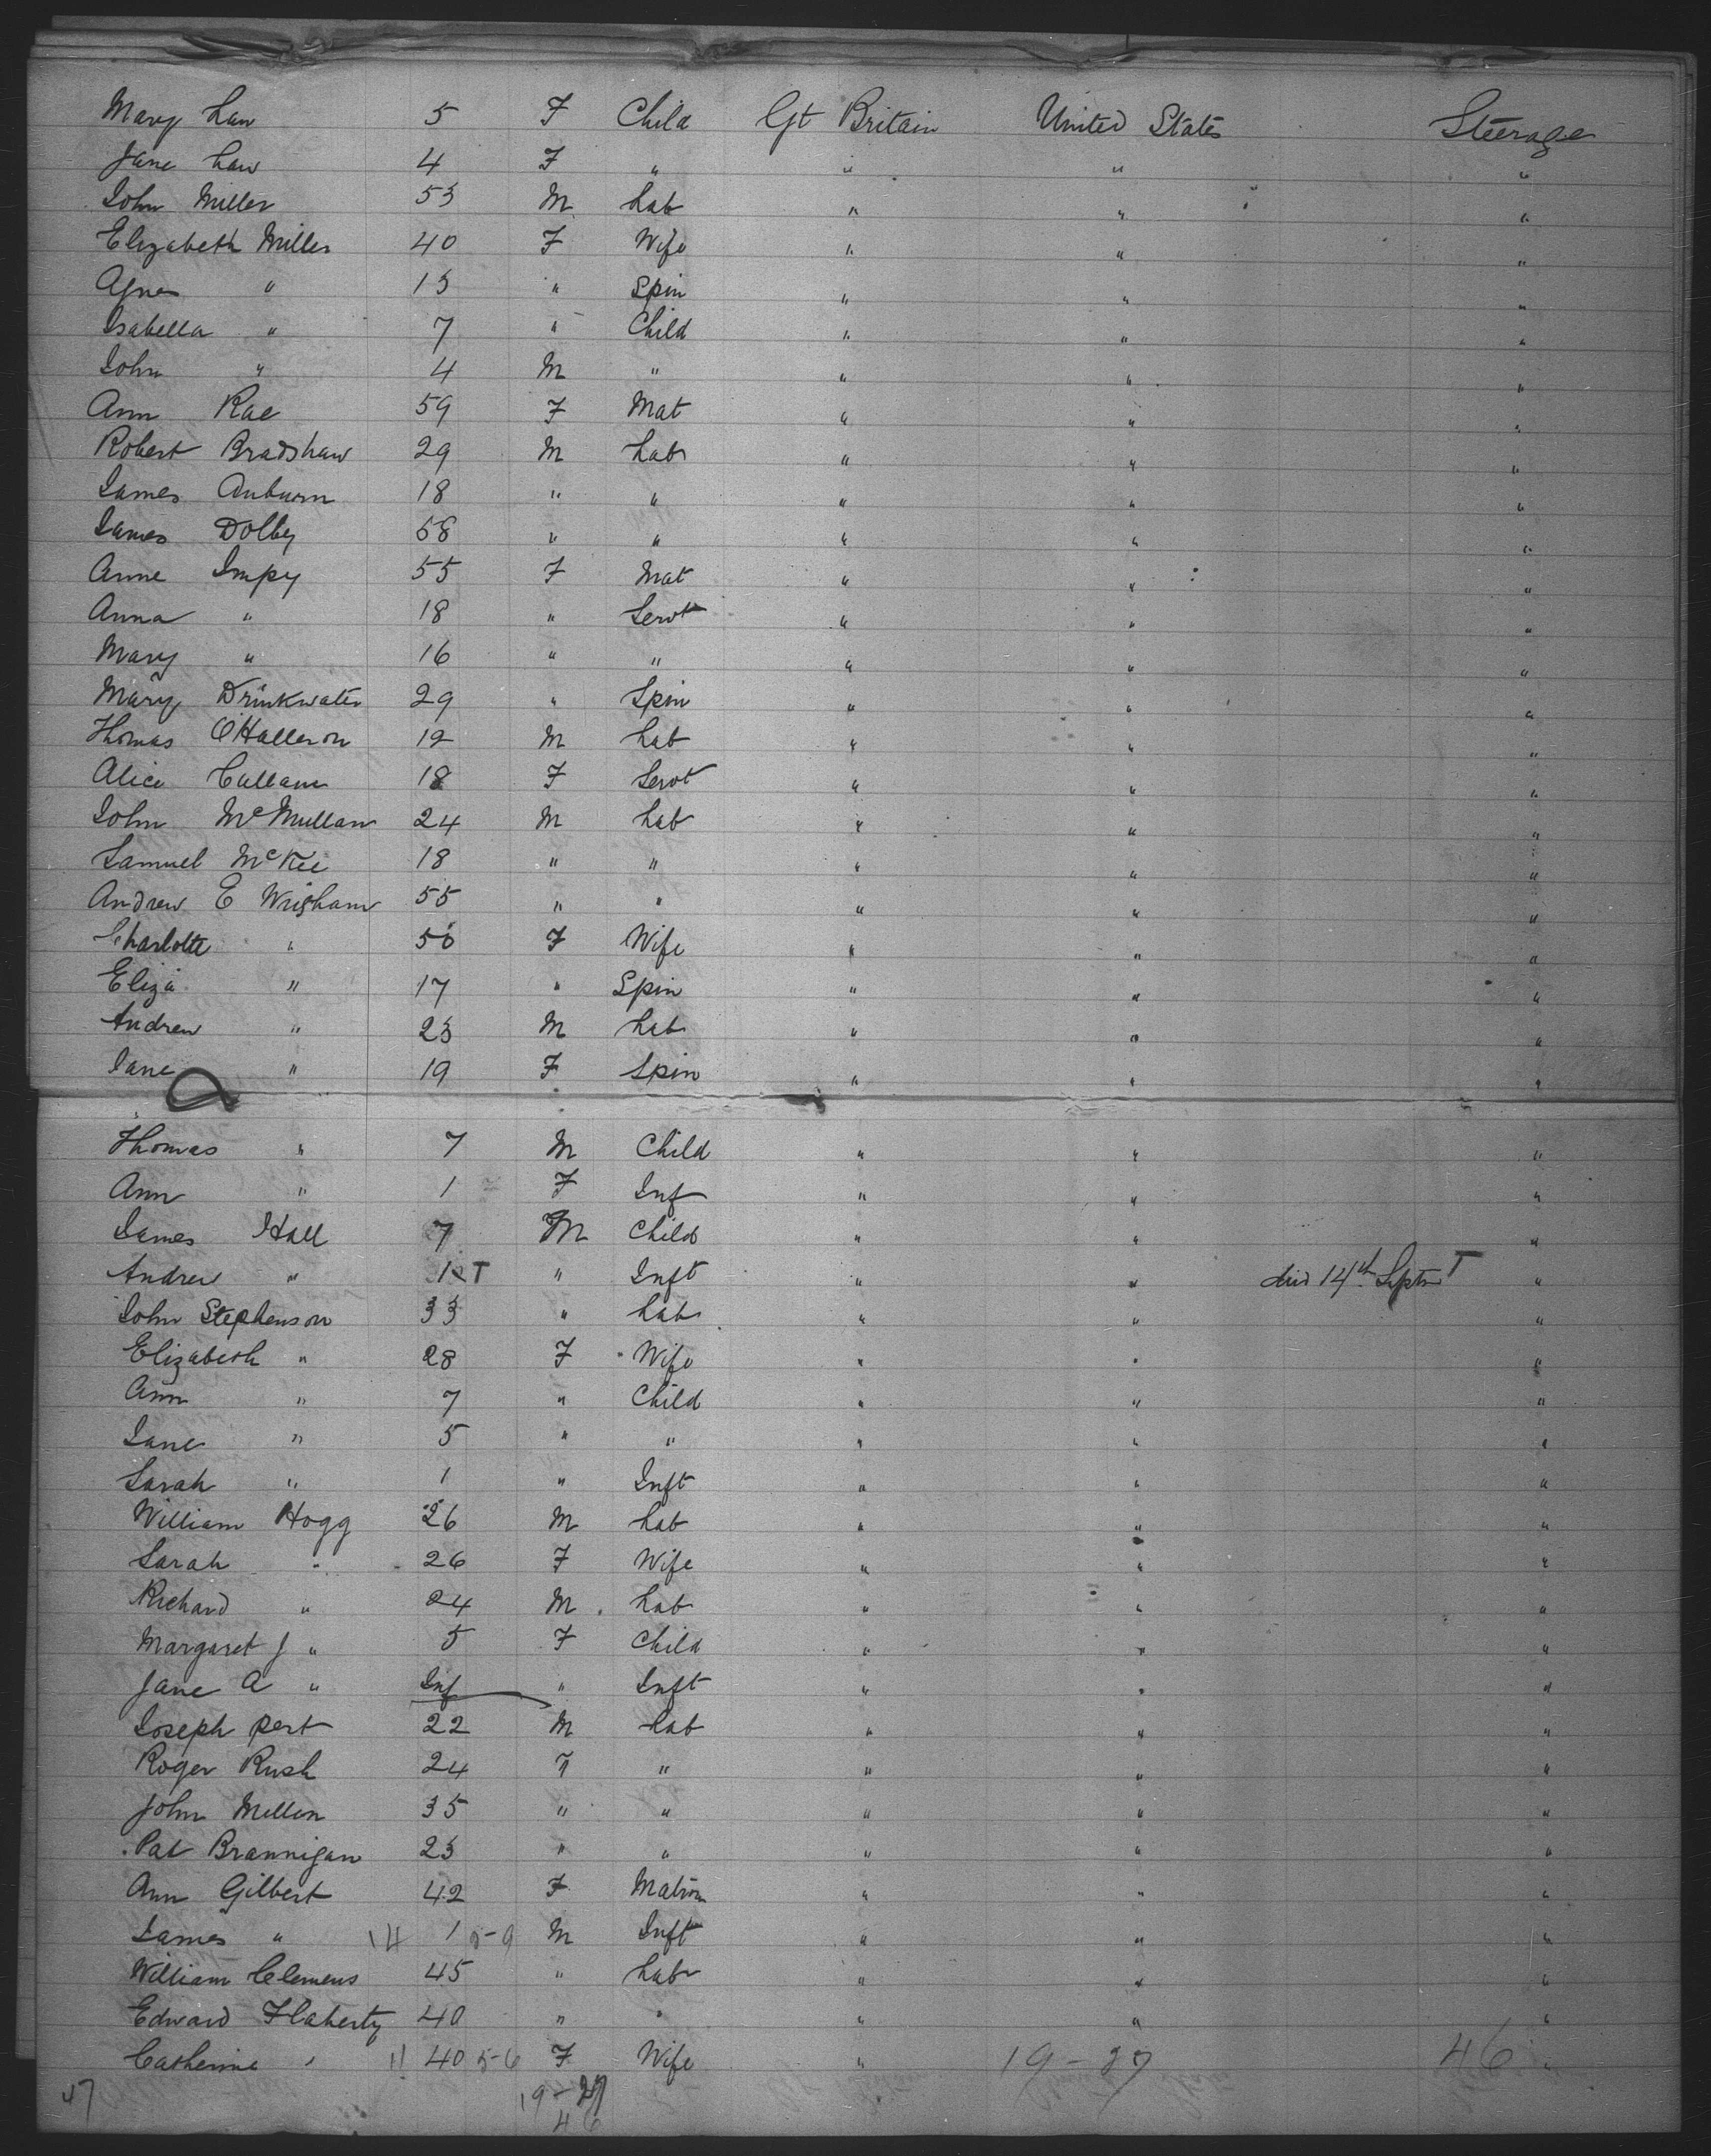 Mary Law 5 F Child Gt Britain United States Steerage
Jane Law 4 F " " " "
John Miller 53 M Lab " " "
Elizabeth Miller 40 F Wife " " "
Agnes " 13 " Spin " " "
Isabella " 7 " Child " " "
John " 4 M " " " "
Ann Rae 59 F Mat " " "
Robert Bradshaw 29 M Lab " " "
James Auburn 18 " " " " "
James Dolby 58 " " " " "
Anne Impy 55 F Mat " " "
Anna " 18 " Servt " " "
Mary " 16 " " " " "
Mary Drinkwater 29 " Spin " " "
Thomas O'Halleron 19 M Lab " " "
Alice Cullam 18 F Servt " " "
John McMullan 24 M Lab " " "
Samuel McKee 18 " " " " "
Andrew E Wrigham 55 " " " " "
Charlotte " 50 F Wife " " "
Eliza " 17 " Spin " " "
Andrew " 23 M Lab " " "
Jane " 19 F Spin " " "
Thomas " 7 M Child " " "
Ann " 1 F Inf " " "
James Hall 7 M Child " " "
Andrew " 1 T " Inft " " died 14th Septr T "
John Stephenson 33 " Lab " " "
Elizabeth " 28 F Wife " " "
Ann " 7 " Child " " "
Jane " 5 " " " " "
Sarah " 1 " Inft " " "
William Hogg 26 M Lab " " "
Sarah " 26 F Wife " " "
Richard " 24 M Lab " " "
Margaret J " 5 F Child " " "
Jane A " Inf " Inft " " "
Joseph Pert 22 M Lab " " "
Roger Rush 24 " " " " "
John Mellon 35 " " " " "
Pat Brannigan 23 " " " " "
Ann Gilbert 42 F Matron " " "
James " 14 1 5-9 M Inft " " "
William Clemens 45 " Lab " " "
Edward Flaherty 40 " " " " "
Catherine " 11 40 5-6 F Wife " 19-27 46 "
47 19-27
46